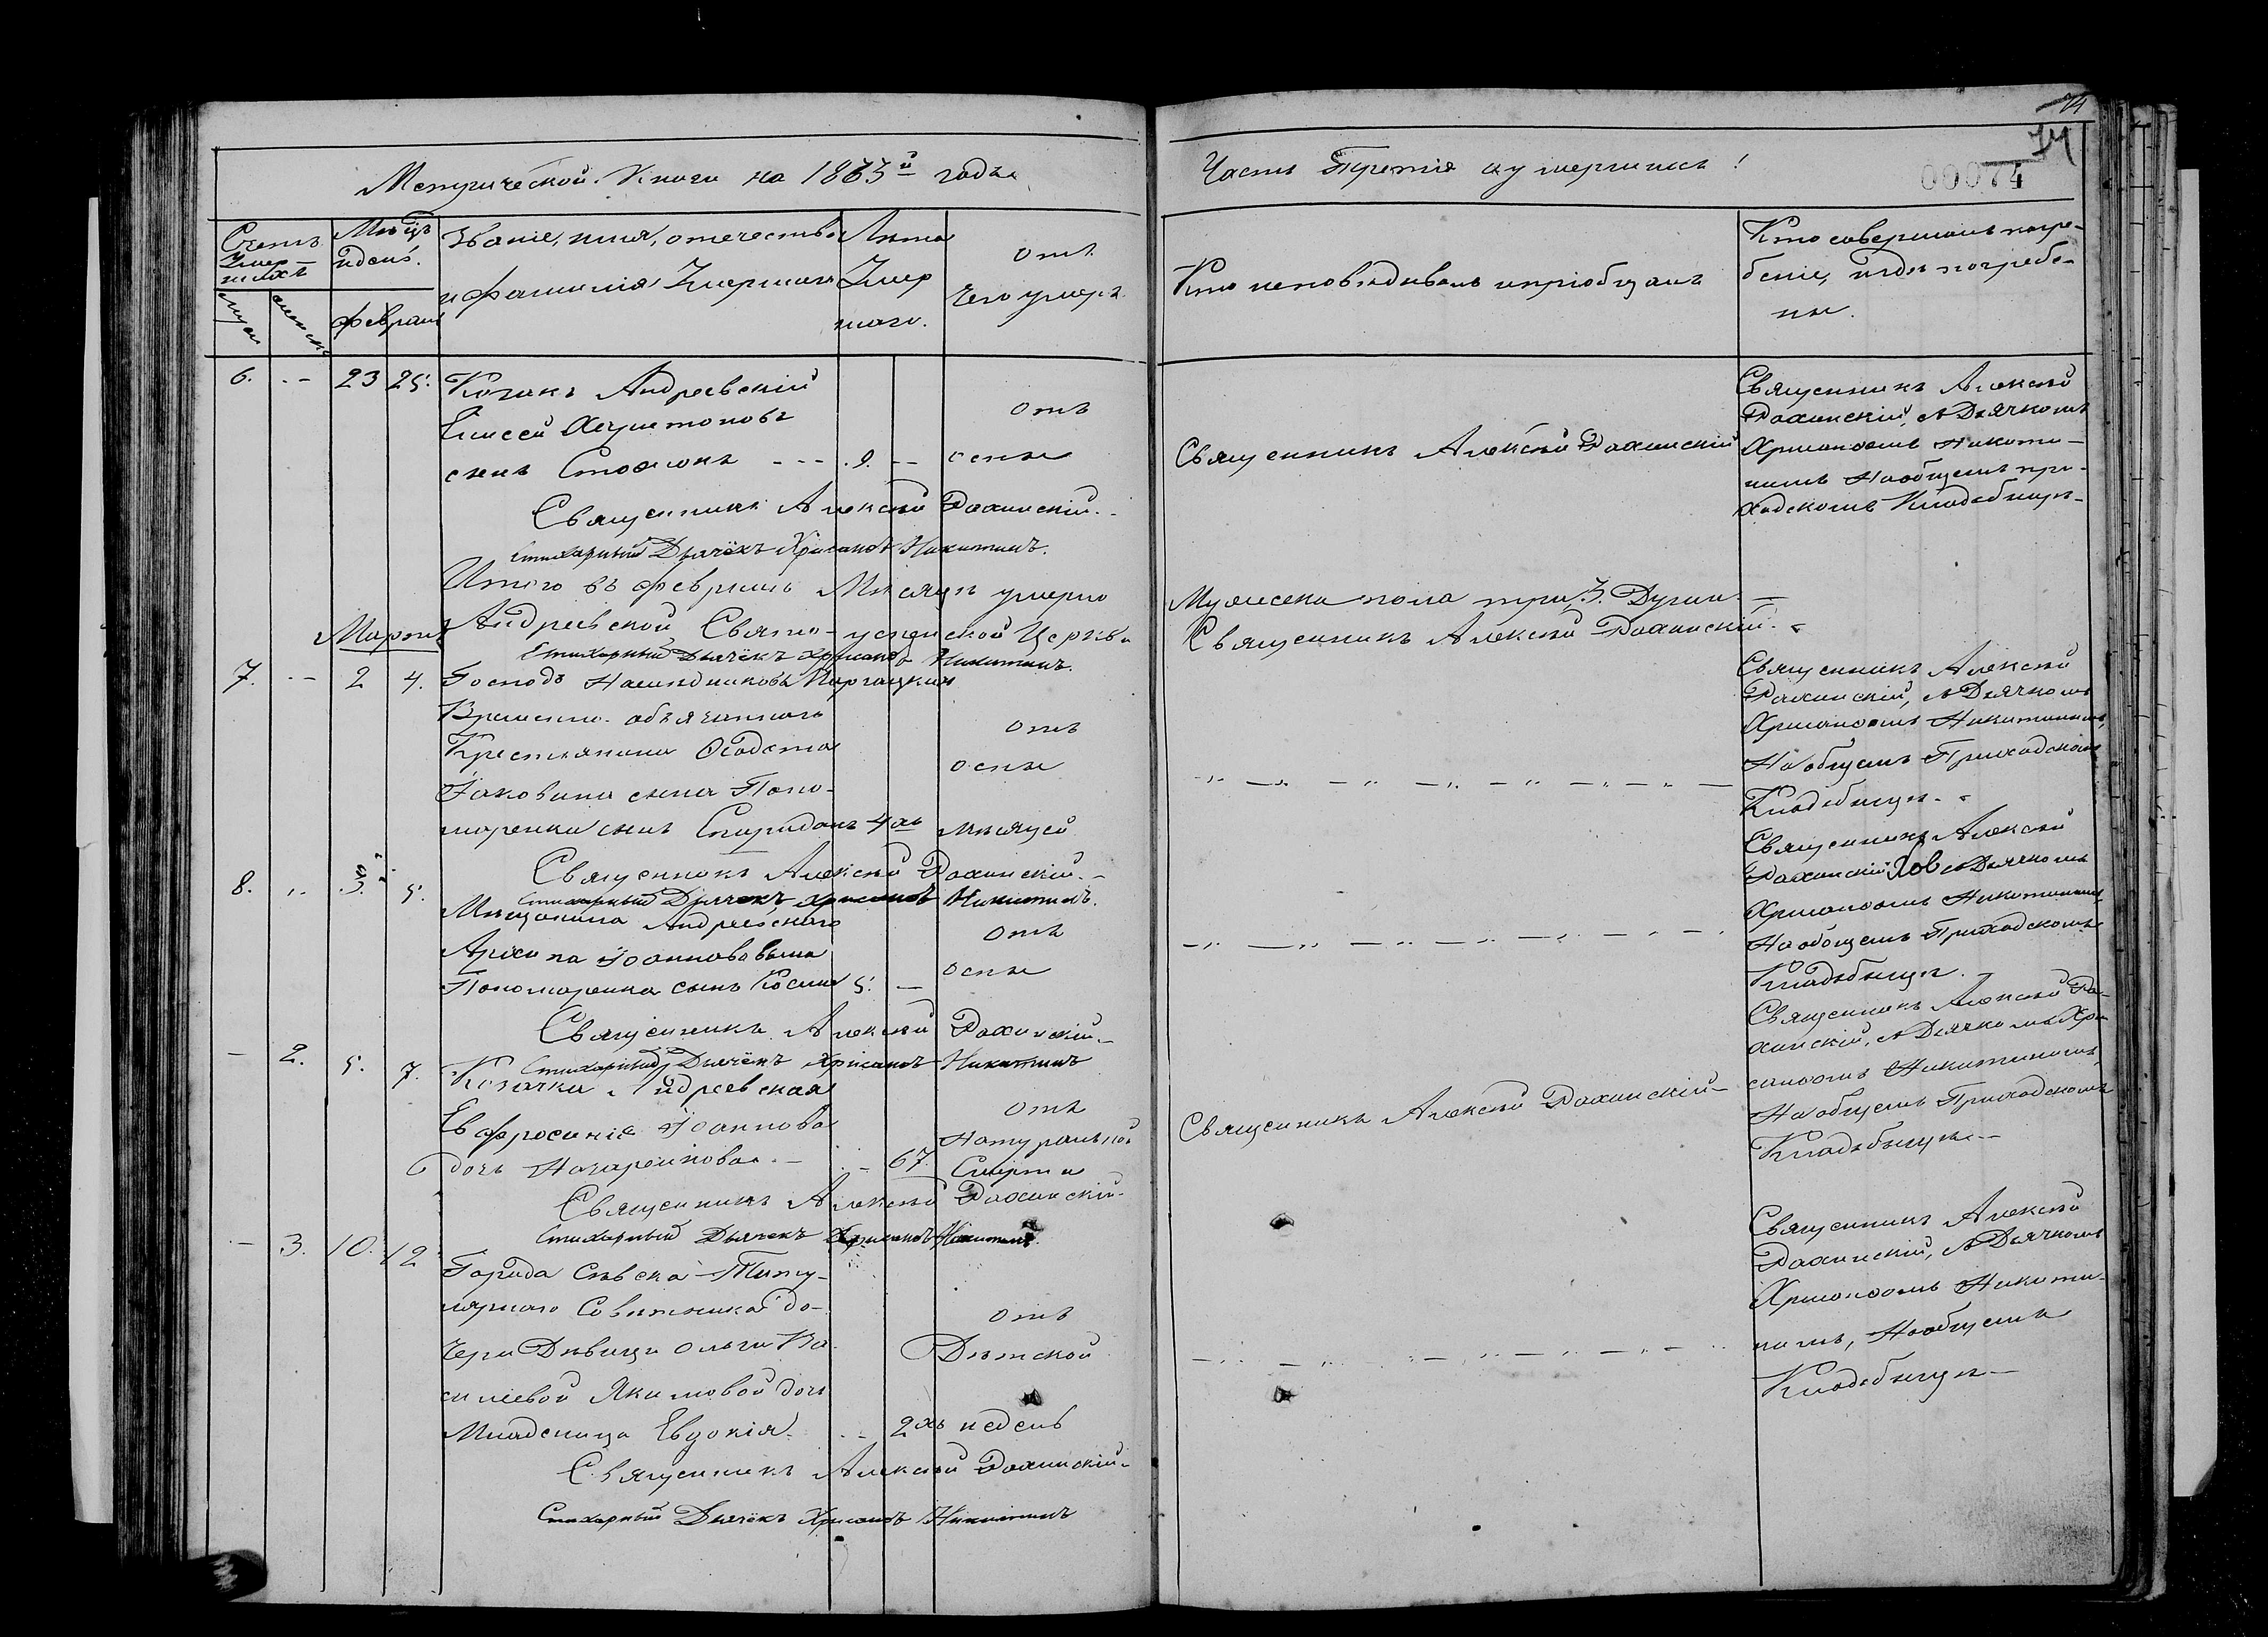 Метрической Книги на 1863й годъ
Счетъ Умер-шихъ
Мѣсяцъ и день.
Званіе, имя, отечество и фамилія Умершихъ
Лѣта Умершаго.
Отъ чего умеръ
мужеска
женска
Февраль
6. -- 23 25. Козакъ Андреевскій
Елисей Харитоновъ
сынъ -- 9. --
отъ
оспы
Священникъ Алексѣй Рахинскій.-
Стихарный Дьячёкъ Хрисанѳъ Никитинъ.
Итого въ Февралѣ Мѣсяцѣ умерло
Андреевской Свято-успенской Церкви
Стихарный Дьячёкъ Хрисанѳъ Никитинъ.
Мартъ
7. -- 2 4. Господъ Наслѣдниковъ
Временно-обязаннаго
Крестьянина Ѳеодота
Іаковина сына Поно-
маренка сынъ Спиридонъ 4хъ мѣсяцей
отъ
оспы
Священникъ Алексѣй Рахинскій.-
Стихарный Дьячекъ Хрисанѳъ Никитинъ.
8. " 3. 5. Мѣщанина Андреевскаго
Архипа Іоаннова сына
Пономаренка сынъ Косма 5. --
отъ
оспы
Священникъ Алексѣй Рахинскій.-
Стихарный Дьячёкъ Хрисанѳъ Никитинъ
- 2. 5. 7. Козачка Андреевская
Евфросинія Іоаннова
дочь Назаренкова.- -- 67.
отъ
натуральной
Смерти
Священникъ Алексѣй Рахинскій.
Стихарный Дьячекъ Хрисанѳъ Никитинъ.
- 3. 10. 12 Города Сѣвска Титу-
лярнаго Совѣтника до-
чери Дѣвицы Ольги Ва-
силіевой Якимовой дочь
Младеница Евдокія. -- 2хъ недель
отъ
Дѣтской
Священникъ Алексѣй Рахинскій.
Стихарный Дьячёкъ Хрисанѳъ Никитинъ
Часть Третія о умершихъ!
74
00074
Кто исповѣдывалъ и пріобщалъ
Кто совершалъ погре-
беніе, и гдѣ погребе-
ны.
Священникъ Алексѣй Рахинскій
Священникъ Алексѣй
Рахинскій, съ Дьячкомъ
Хрисанѳомъ Никити-
нымъ На общемъ при-
ходскомъ Кладбищѣ-
Мужеска пола три, 3. Души.--
Священникъ Алексѣй Рахинскій.-
Священникъ Алексѣй
Рахинскій, съ Дьячкомъ
Хрисанѳомъ Никитинымъ,
На общемъ Приходскомъ
Кладбищѣ.-
Священникъ Алексѣй
Рахинскій съ Дьячкомъ
Хрисанѳомъ Никитинымъ,
На общемъ Приходскомъ
Кладбищѣ.
Священникъ Алексѣй Рахинскій-
Священникъ Алексѣй Ра-
хинскій, съ Дьячкомъ Хри-
санѳомъ Никитинымъ,
На общемъ Приходскомъ
Кладбищѣ.-
Священникъ Алексѣй
Рахинскій, съ Дьячкомъ
Хрисанѳомъ Никити-
нымъ, На общемъ
Кладбищѣ-